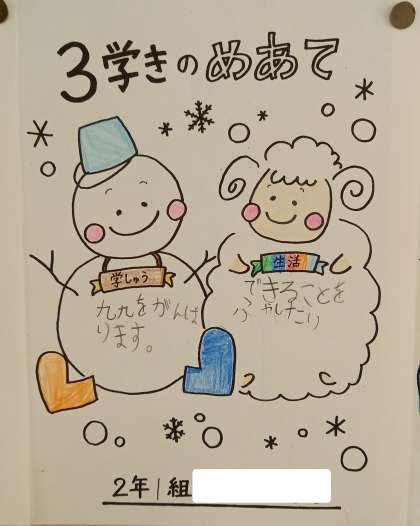 3学きのめあて
学しゅう
九九をがんば
ります。
生活
できることを
ふやしたい
2年1組